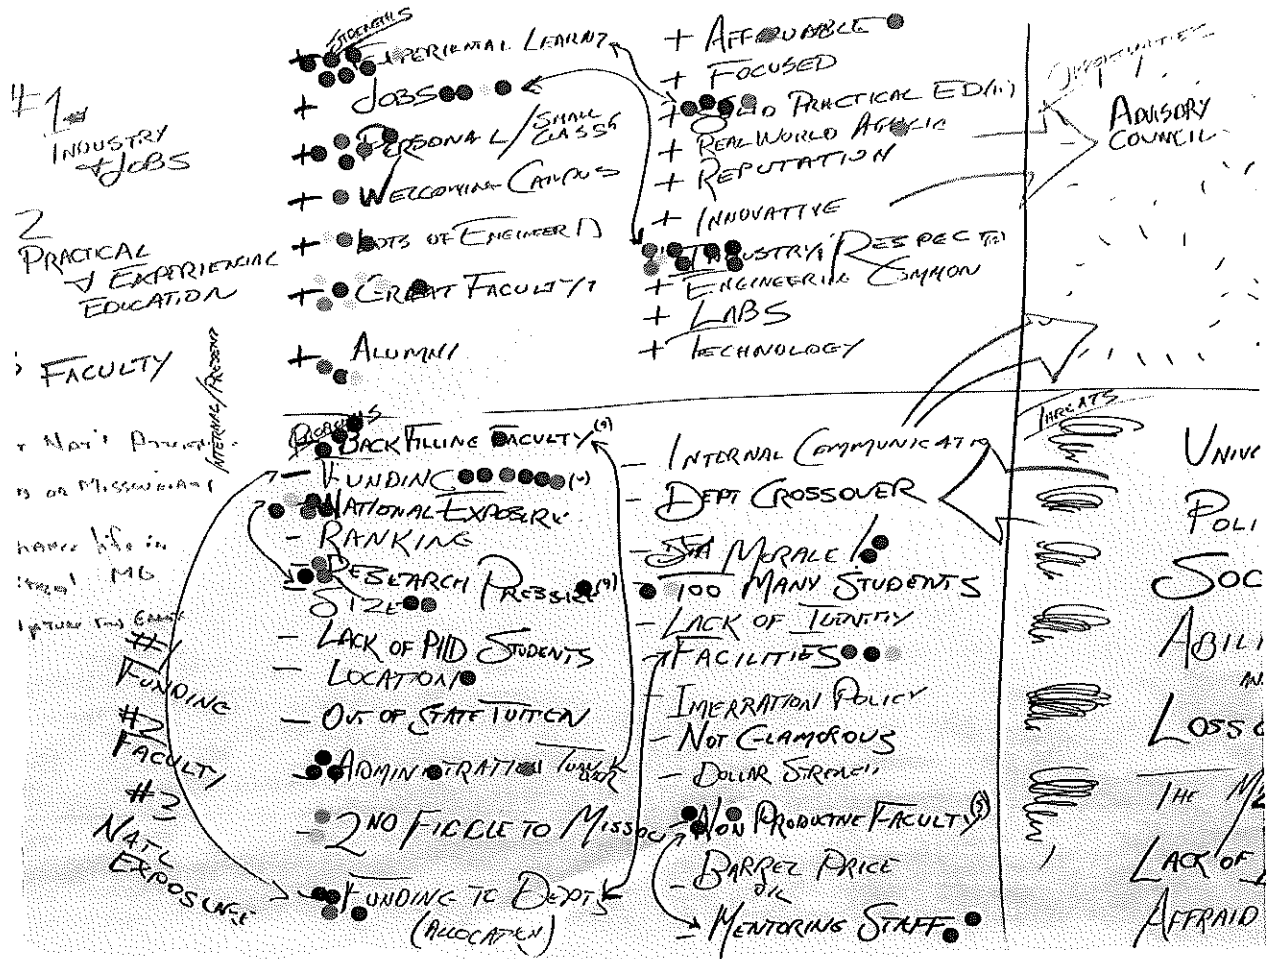 #1
INDUSTRY
+ JOBS
2
PRACTICAL
+ EXPERIENCIAL
EDUCATION
FACULTY
INTERNAL/PRESENT
OR MISSOURIANS
life in
MO
#1
FUNDING
#2
FACULTY
#3
NATL
EXPOSURE
STRENGTHS
+ EXPERIENTAL LEARNG
+ JOBS
+ PERSONAL/SMALL
CLASS
+ WELCOMING CAMPUS
+ LOTS OF ENGINEER'N
+ GREAT FACULTY
+ ALUMNI
+ AFFORDABLE
+ FOCUSED
+ SOLID PRACTICAL ED
+ REAL WORLD
+ REPUTATION
+ INNOVATIVE
INDUSTRY/RESPECT
+ ENGINEERING COMMON
+ LABS
+ TECHNOLOGY
OPPORTUNITIES
ADVISORY
COUNCIL
PROBLEMS
BACK FILLING FACULTY
- FUNDING
NATIONAL EXPOSURE
- RANKING
- RESEARCH PRESSURE
- SIZE
- LACK OF PHD STUDENTS
- LOCATION
- OUT OF STATE TUITION
- ADMINISTRATION
- 2ND FIDDLE TO MISSOU
- FUNDING TO DEPTS
(ALLOCATION)
- INTERNAL COMMUNICATIO
- DEPT CROSSOVER
- MORALE
TOO MANY STUDENTS
- LACK OF IDENTITY
- FACILITIES
- IMERRATION POLICY
- NOT GLAMOROUS
- DOLLAR
NON PRODUCTIVE FACULTY
- BARREL PRICE
OIL
- MENTORING STAFF
THREATS
UNIVE
POLI
SOC
ABILI
AN
LOSS O
THE
LACK OF
AFFRAID